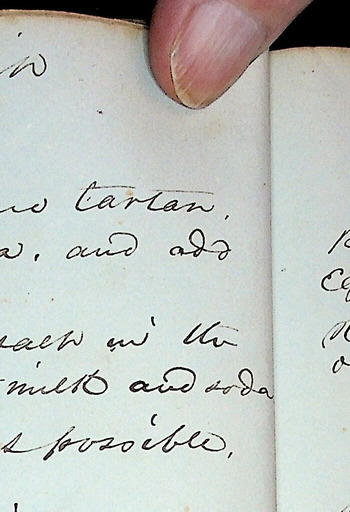 in
tartar.
a. and add
salt in the
milk and soda
s possible.